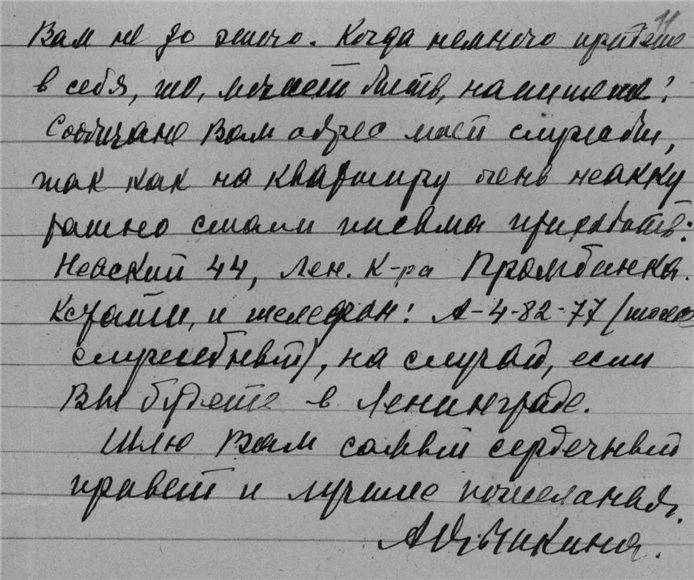 11
Вам не до этого. Когда немного придете
в себя, то, может быть, напишете?
Сообщаю Вам адрес моей службы,
так как на квартиру очень неакку
ратно стали письма приходить:
Невский 44, Лен. К-ра Промбанка.
Кстати, и телефон: А-4-82-77 (тоже
служебный), на случай, если
Вы будете в Ленинграде.
Шлю Вам самый сердечный
привет и лучшие пожелания.